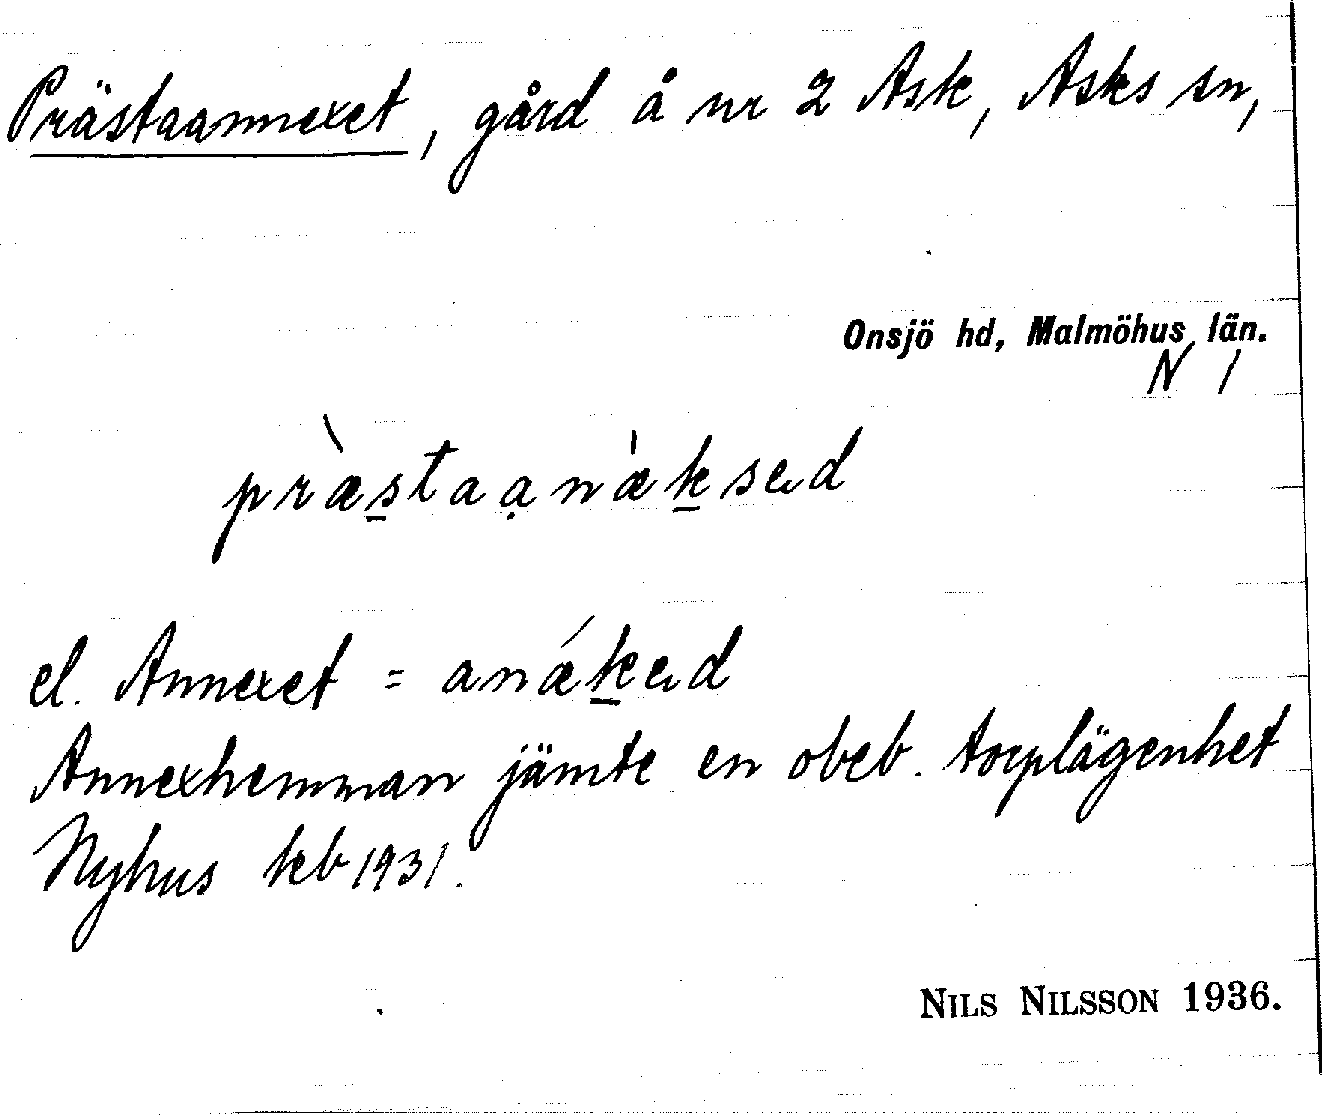 Prästaannexet, gård å nr 2 Ask, Asks sn,
Onsjö hd, Malmöhus län.
N 1
præ̀s̲taạnæ̍k̲səd
el. Annexet = anǽk̲səd
Annexhemman jämte en obeb. torplägenhet
Nyhus kb 1931.
NILS NILSSON 1936.